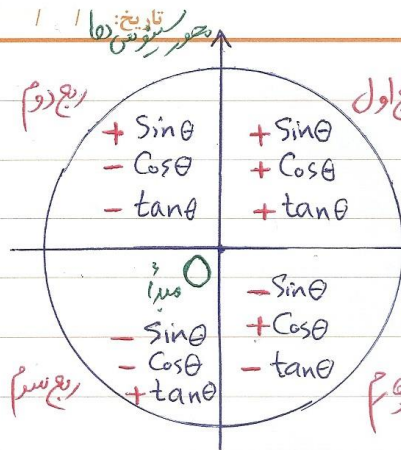 تاریخ: / /
محور سینوس‌ها
ربع دوم
اول
+ Sinθ
- Cosθ
- tanθ
+ Sinθ
+ Cosθ
+ tanθ
O
مبدأ
- Sinθ
- Cosθ
+ tanθ
- Sinθ
+ Cosθ
- tanθ
ربع سوم